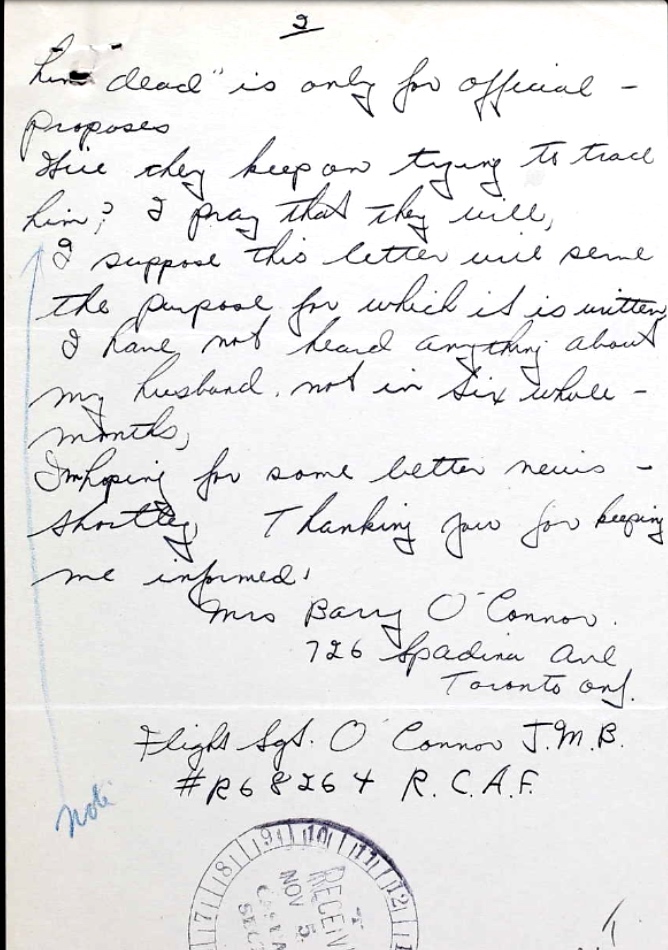 2
him dead" is only for official -
proposes
Will they keep on trying to trace
him? I pray that they will,
I suppose this letter will serve
the purpose for which it is written,
I have not heard anything about
my husband, not in six whole -
months,
Im hoping for some better news -
shortley, Thanking you for keeping
me informed,
Mrs Barry O'Connor.
726 Spadina Ave
Toronto Ont.
Flight Sgt. O'Connor J.M.B.
#R68264 R.C.A.F.
note
7 8 9 10 11 12
NOV 5